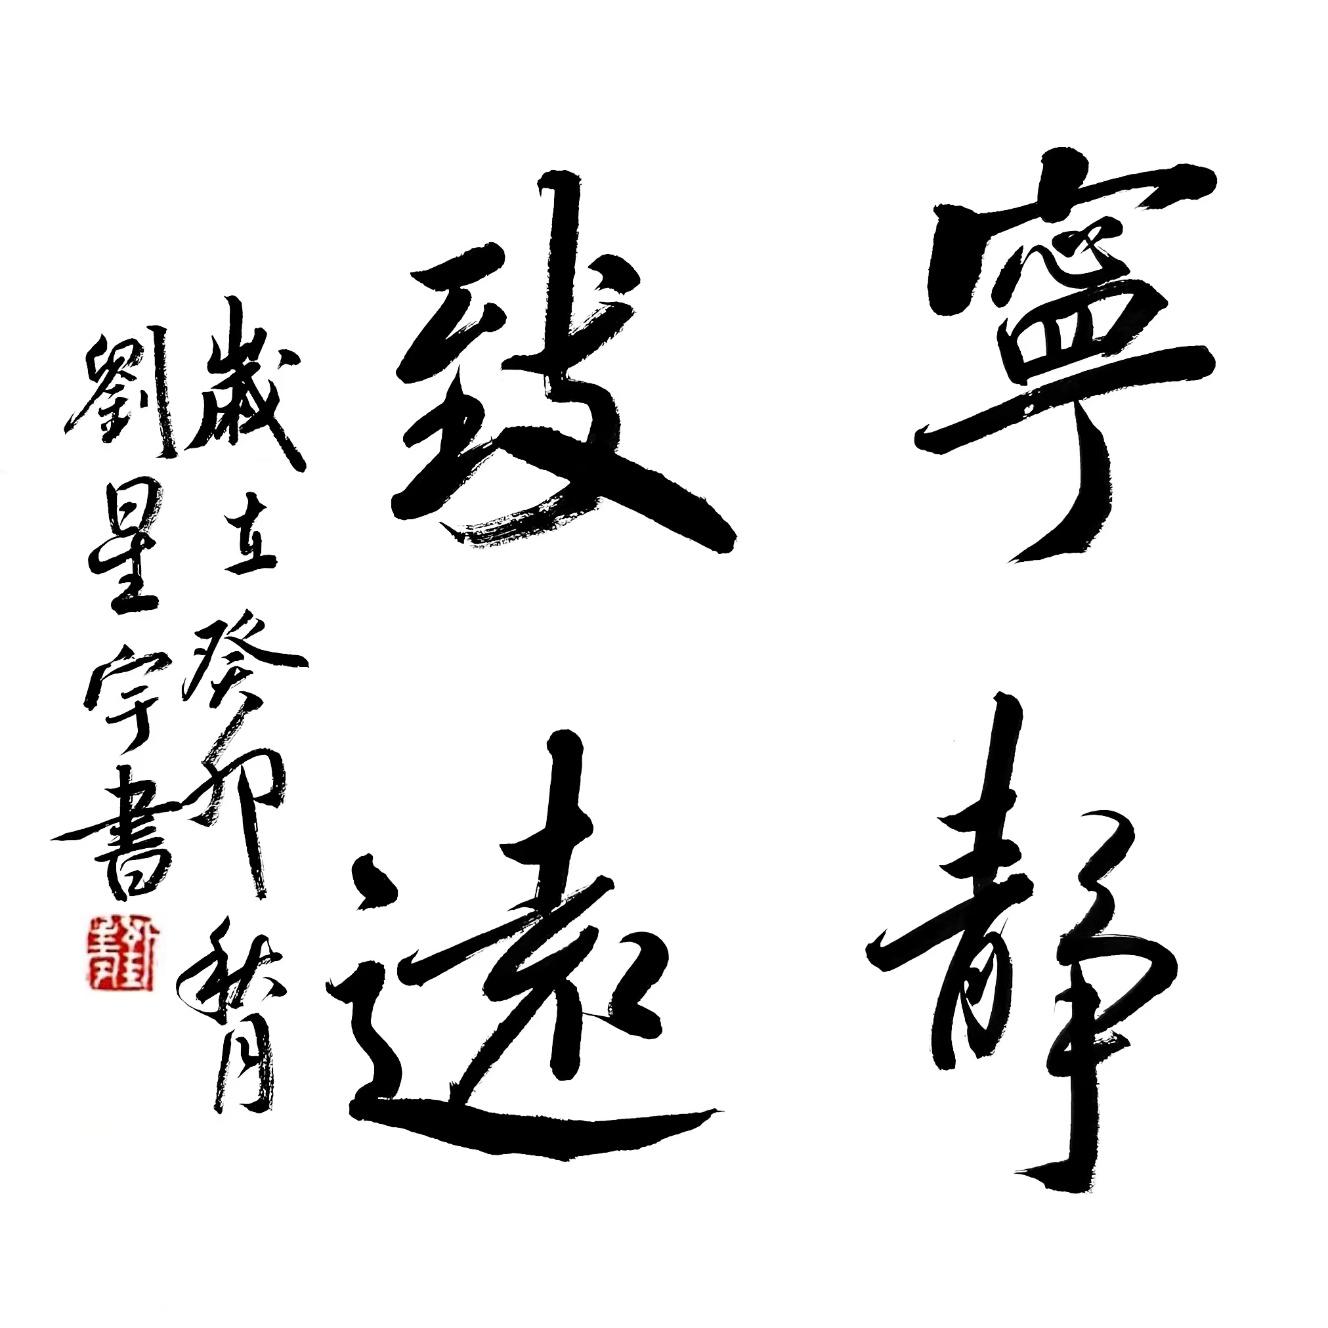 寧靜
致遠
歲在癸卯秋月
劉星宇書